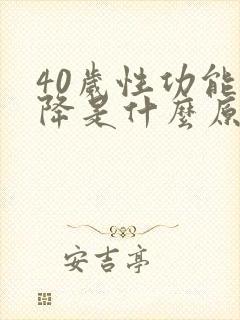 40歲性功能
降是什麼原
安吉亭